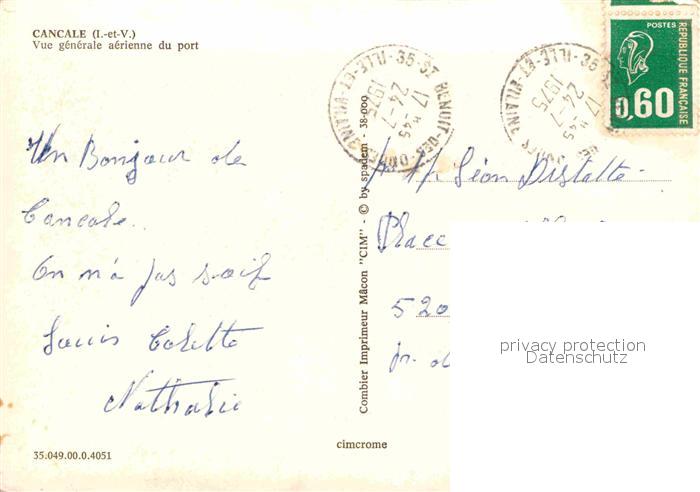 CANCALE (I.-et-V.)
Vue générale aérienne du port
35-ST BENOIT-DES-ONDES ILLE-ET-VILAINE
17 H 45
24-7
1975
35-ST
17 H 45
24-7
1975
ILLE-ET-VILAINE
POSTES
REPUBLIQUE FRANÇAISE
0,60
Un Bonjour de
Cancale..
On n'a pas soif
Louis Colette
Nathalie
Léon Distatte
Place
520
Combier Imprimeur Mâcon "CIM" - © by spadem - 38-000
privacy protection
Datenschutz
cimcrome
35.049.00.0.4051